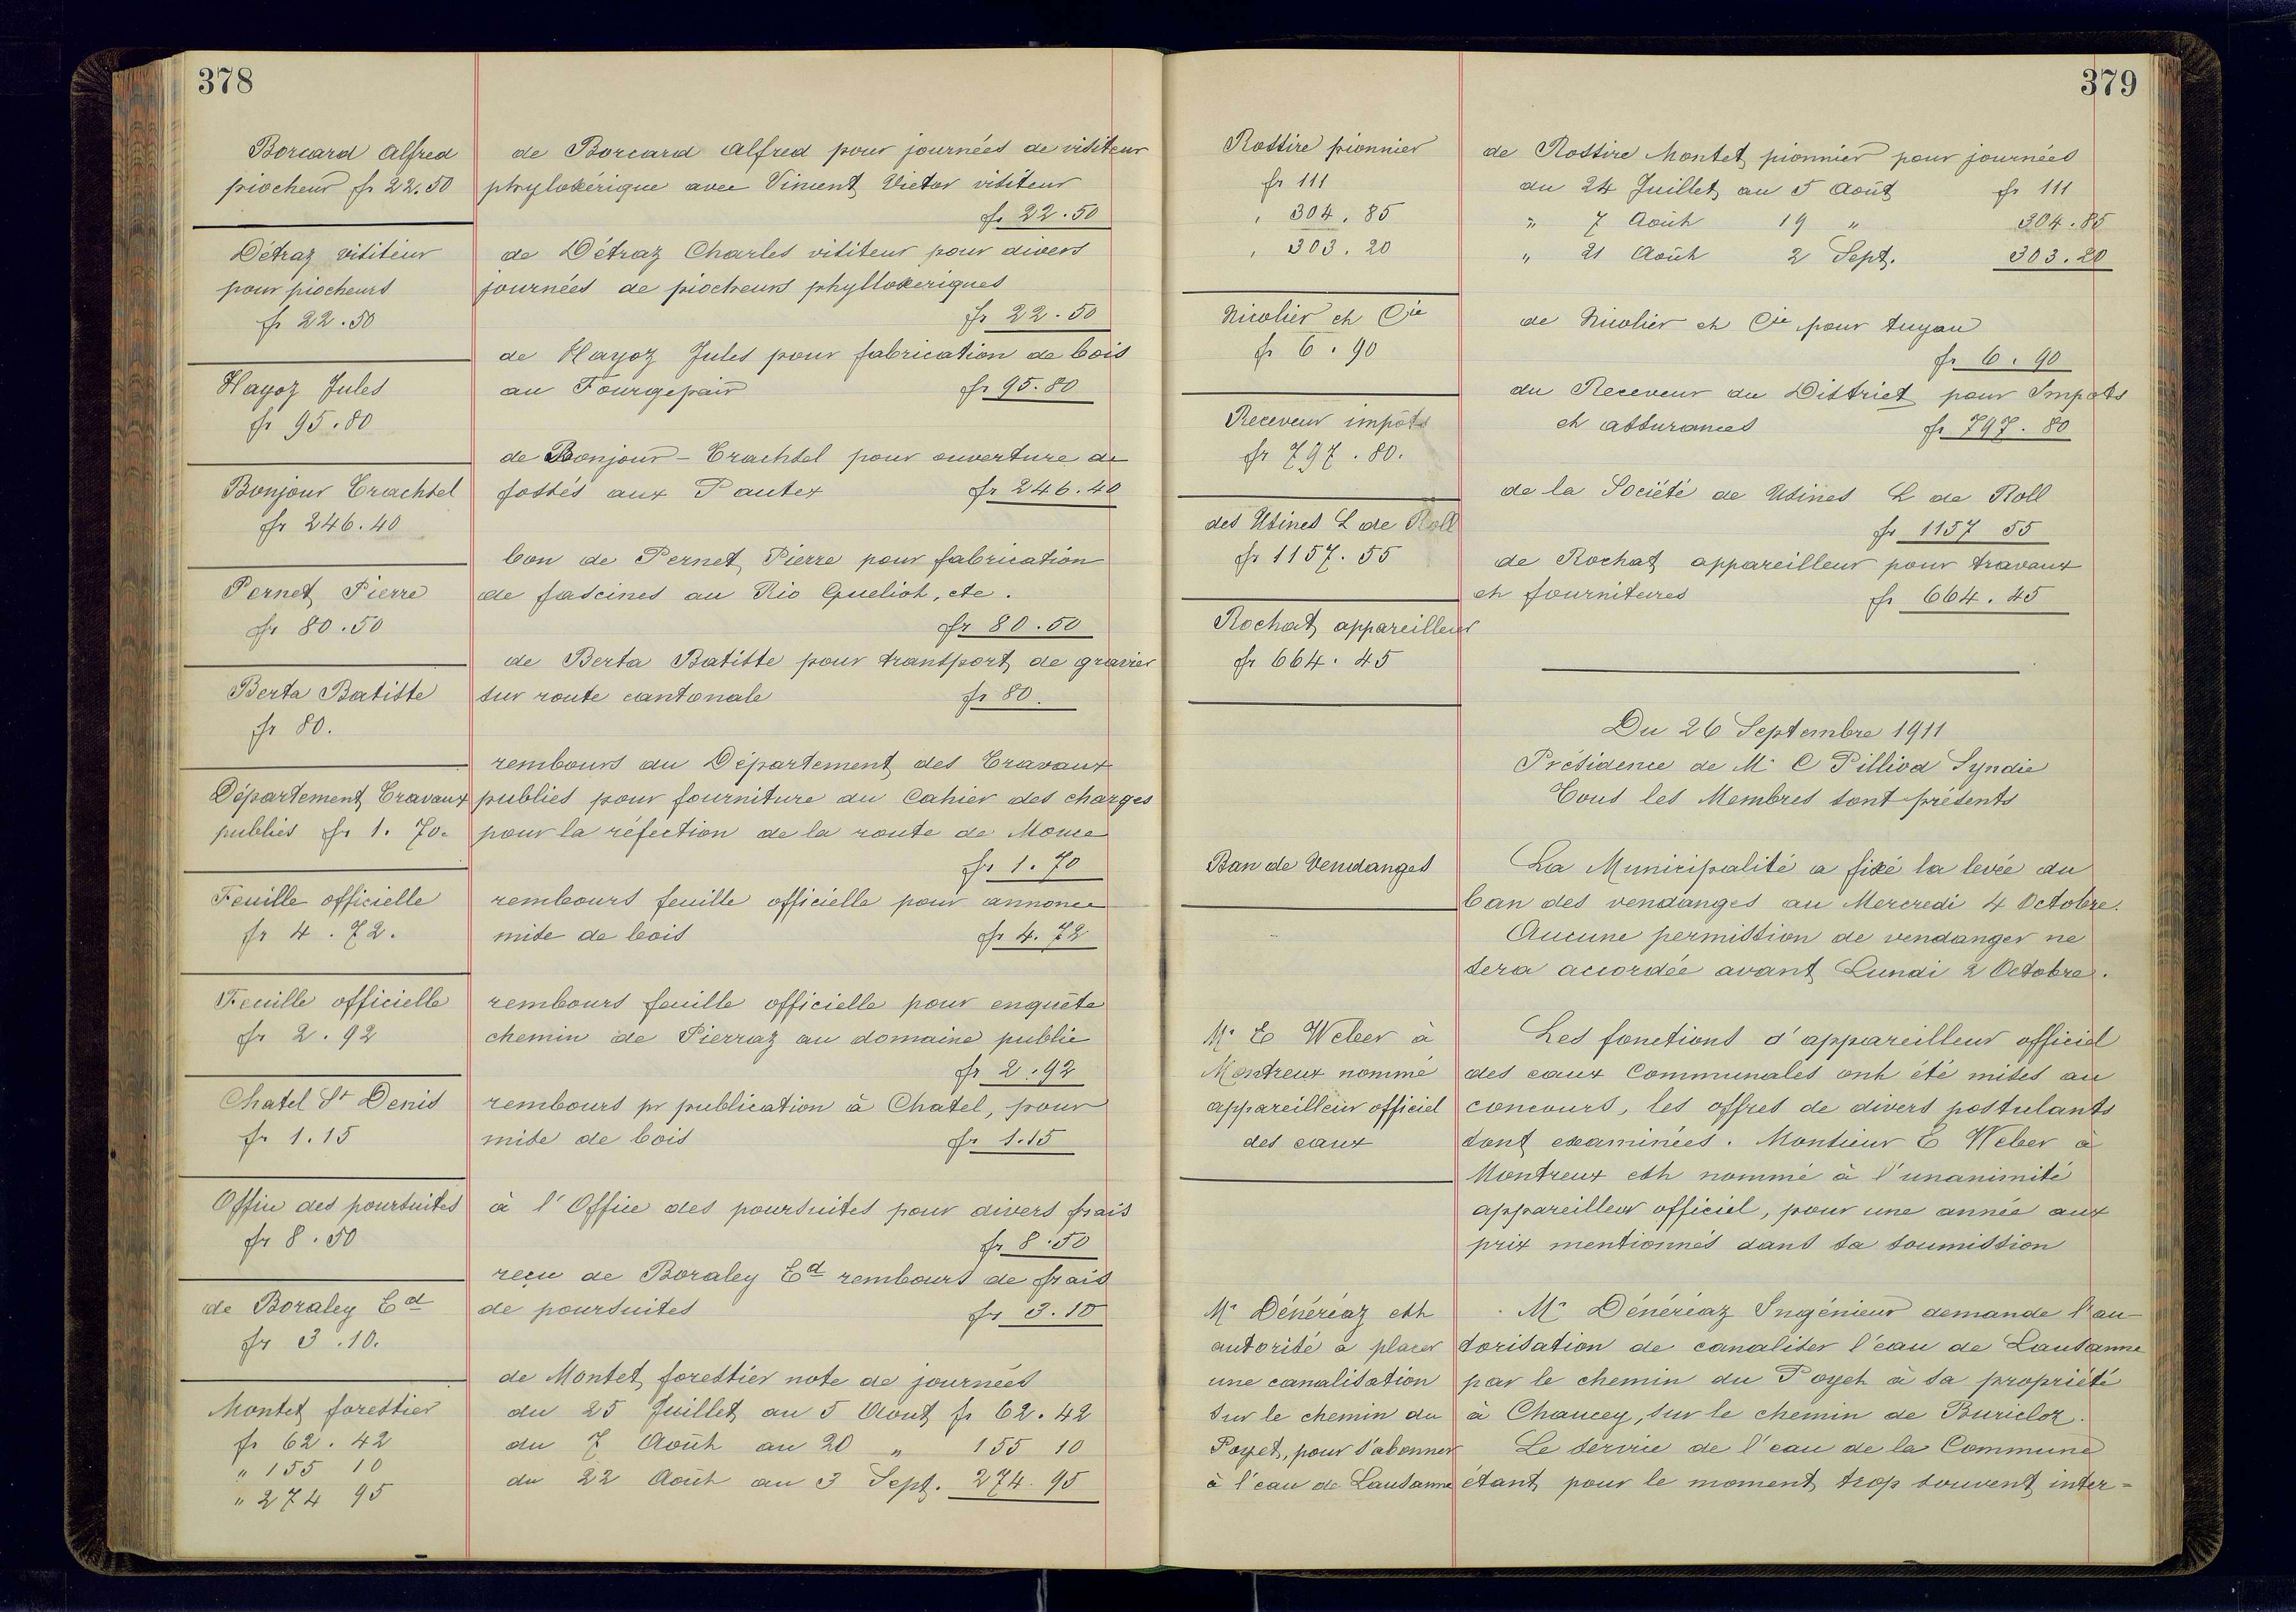 378
Borcard Alfred
piocheur fr 22.50
de Borcard Alfred pour journées de visiteur
phylokérique avec Viment Victor visiteur
fr 22.50
Détraz visiteur
pour piocheurs
fr 22.50
de Détraz Charles visiteur pour divers
journées de piocheurs phyllokeriques
fr 22.50
Hayoz Jules
fr 95.80
de Hayoz Jules pour fabrication de bois
au Fourgepair fr 95.80
Bonjour Trachsel
fr 246.40
de Bonjour-Trachsel pour ouverture de
fossés aux Pautex fr 246.40
Pernet Pierre
fr 80.50
bon de Pernet Pierre pour fabrication
de fascines au Rio Gueliot, etc.
fr 80.50
Berta Batiste
fr 80.
de Berta Batiste pour transport de gravier
sur route cantonale fr 80.
Département Travaux
publics fr 1.70.
rembours au Département des Travaux
publics pour fourniture du Cahier des charges
pour la réfection de la route de Monce
fr 1.70
Feuille officielle
fr 4.72.
rembours feuille officielle pour annonce
mise de bois fr 4.72
Feuille officielle
fr 2.92
rembours feuille officielle pour enquête
chemin de Pierraz au domaine public
fr 2.92
Chatel St Denis
fr 1.15
rembours pr publication à Chatel, pour
mise de bois fr 1.15
Office des poursuites
fr 8.50
à l'Office des poursuites pour divers frais
fr 8.50
de Boraley Ed
fr 3.10.
reçu de Boraley Ed rembours de frais
de poursuites fr 3.10
Montet forestier
fr 62.42
" 155 10
" 274 95
de Montet forestier note de journées
du 25 Juillet au 5 Aout fr 62.42
du 7 Août au 20 " 155 10
du 22 Août au 3 Sept. 274.95
379
Rossire pionnier
fr 111
" 304.85
" 303.20
de Rossire Montet pionnier pour journées
du 24 Juillet au 5 Août fr 111
" 7 Août 19 " 304.85
" 21 Août 2 Sept. 303.20
Nicolier et Cie
fr 6.90
de Nicolier et Cie pour tuyau
fr 6.90
Receveur impôts
fr 797.80.
du Receveur du District pour Impots
et assurances fr 797.80
des Usines L de Roll
fr 1157.55
de la Société de Usines L de Roll
fr 1157 55
Rochat appareilleur
fr 664.45
de Rochat appareilleur pour travaux
et fournitures fr 664.45
Du 26 Septembre 1911
Présidence de Mr C Pilliod Syndic
Tous les Membres sont présents
Ban de Vendanges
La Municipalité a fixé la levée du
ban des vendanges au Mercredi 4 Octobre.
Aucune permission de vendanger ne
sera accordée avant Lundi 2 Octobre.
Mr E Weber à
Montreux nommé
appareilleur officiel
des eaux
Les fonctions d'appareilleur officiel
des eaux Communales ont été mises au
concours, les offres de divers postulants
sont examinées. Monsieur E Weber à
Montreux est nommé à l'unanimité
appareilleur officiel, pour une année aux
prix mentionnés dans sa soumission
Mr Dénéréaz est
autorisé à placer
une canalisation
sur le chemin du
Poyet, pour s'abonner
à l'eau de Lausanne
Mr Dénéréaz Ingénieur demande l'au-
torisation de canaliser l'eau de Lausanne
par le chemin du Poyet à sa propriété
à Chaucey, sur le chemin de Buricloz.
Le service de l'eau de la Commune
étant pour le moment trop souvent inter=